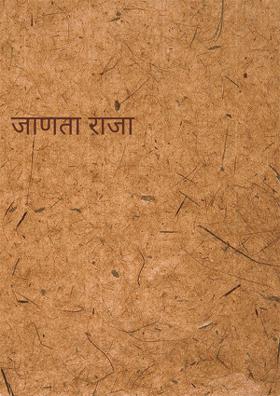 जाणता राजा